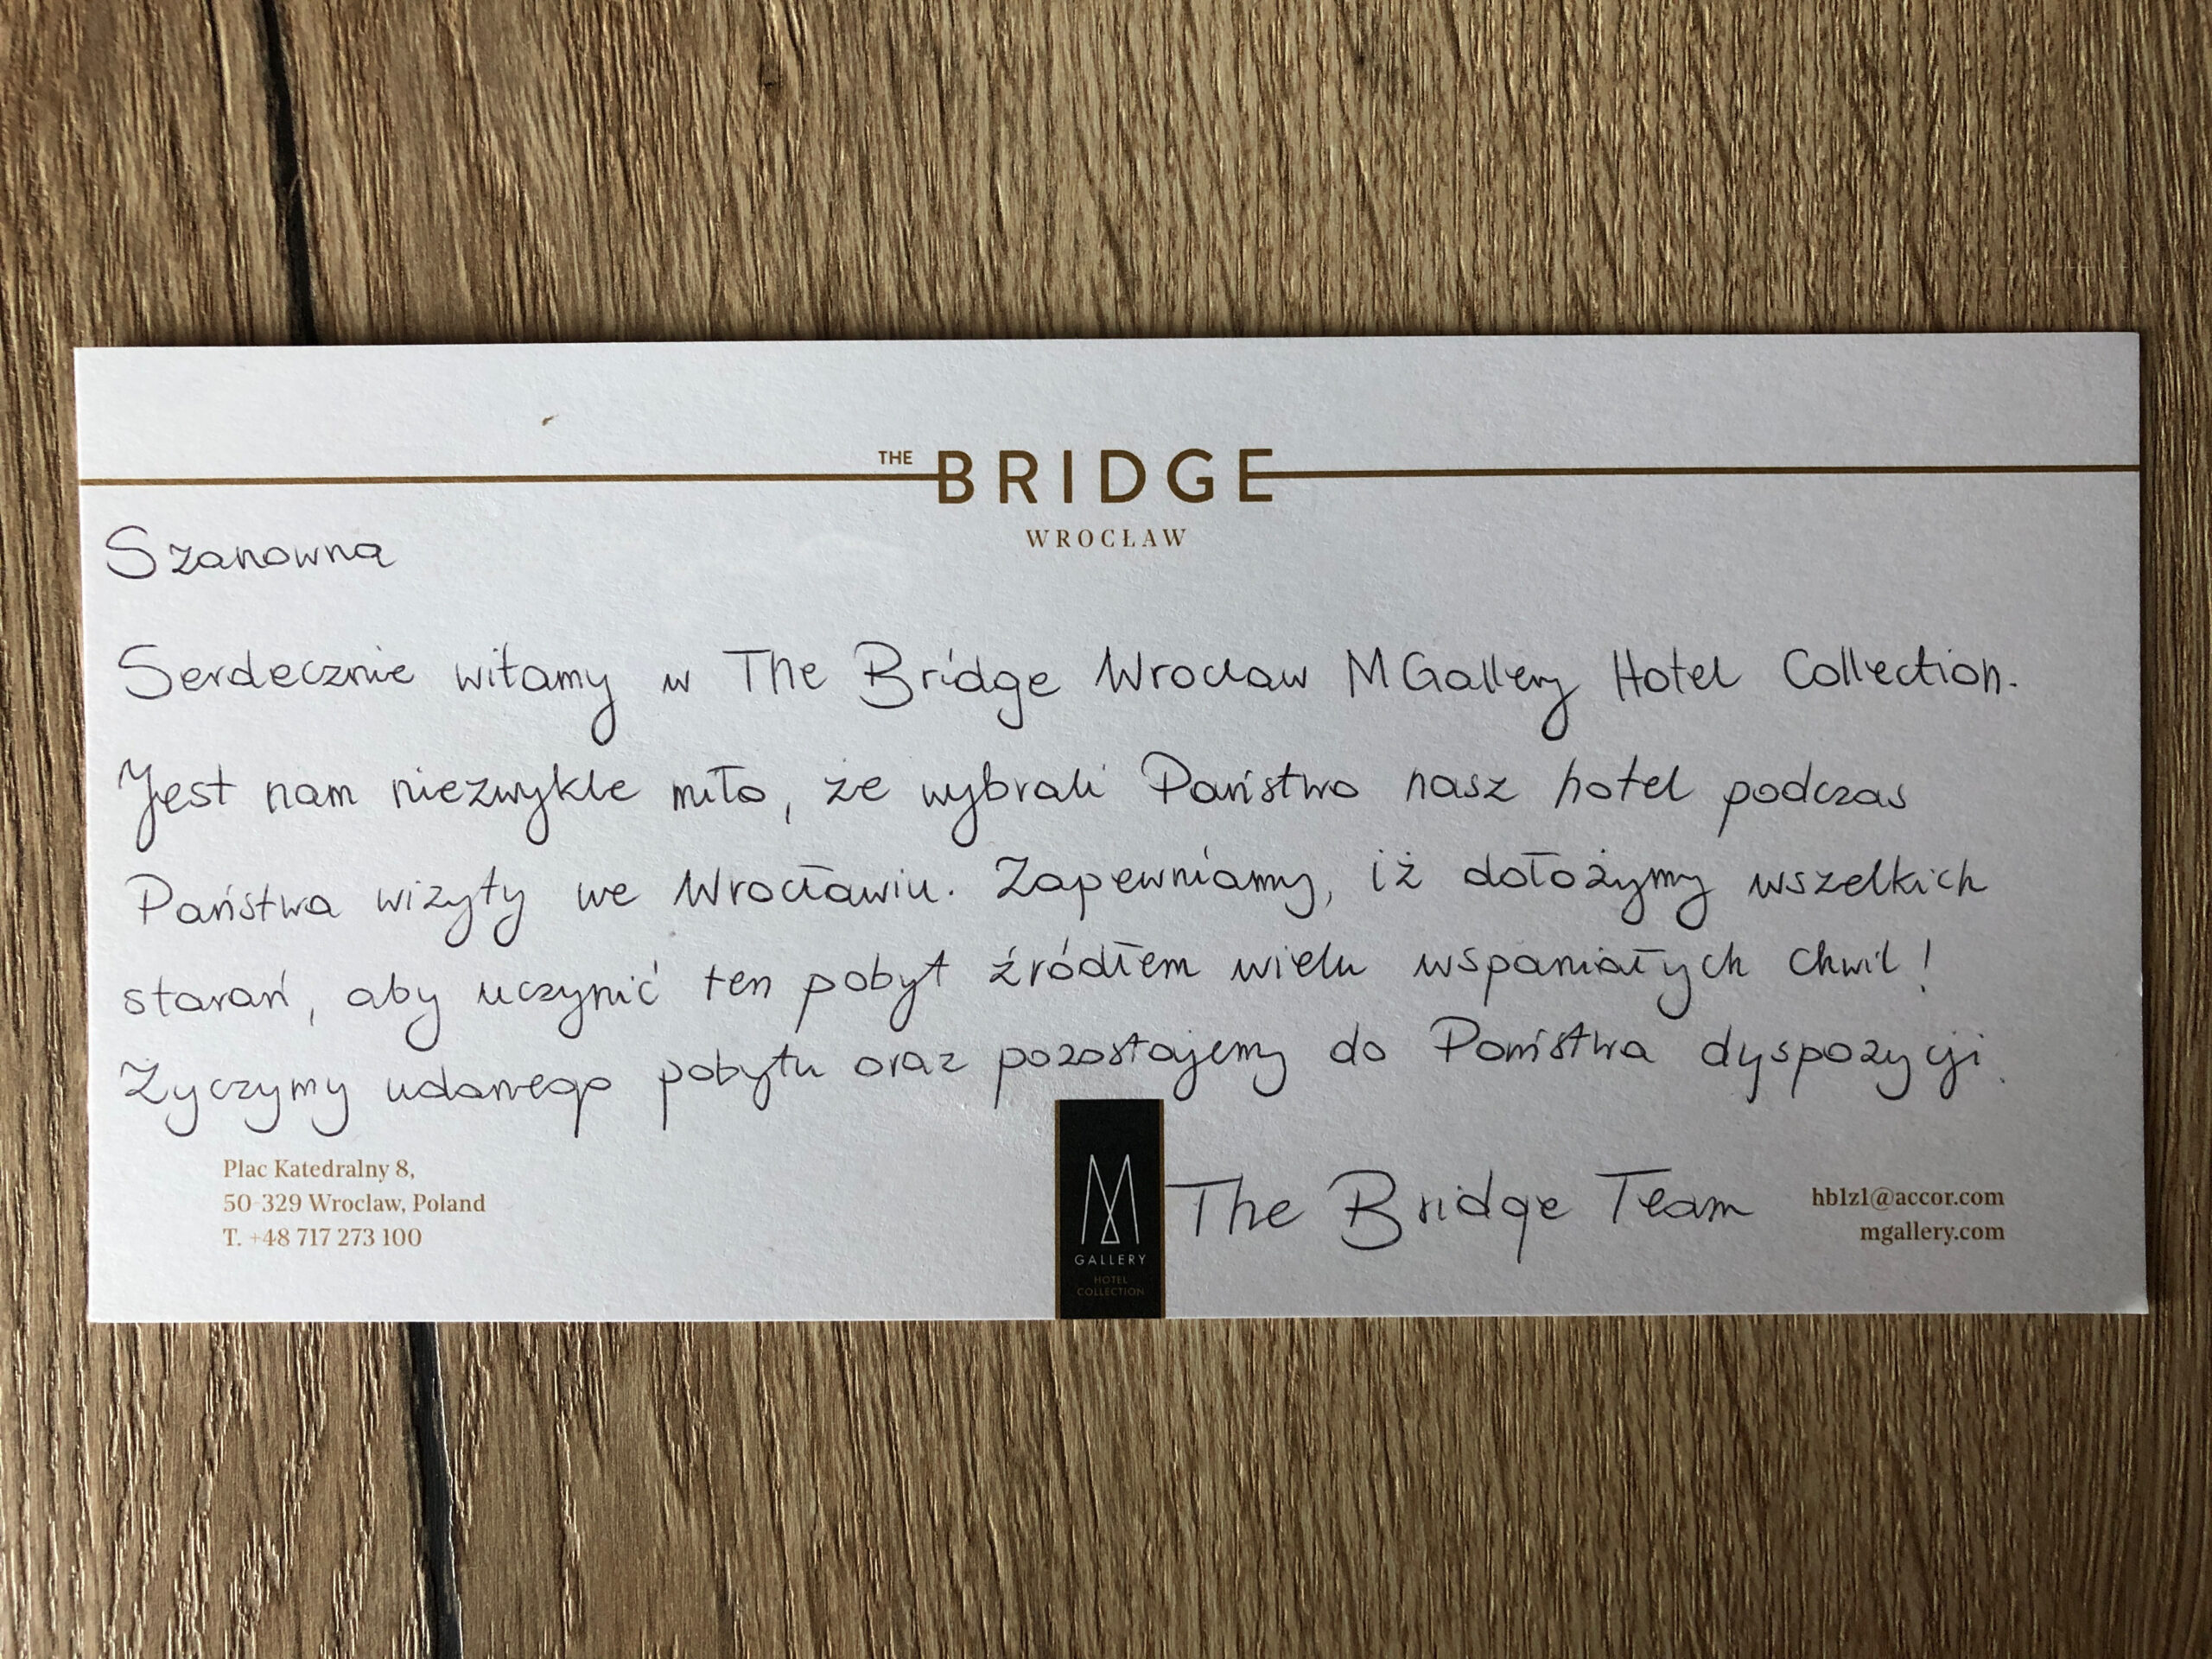 THE BRIDGE
WROCŁAW
Szanowną
Serdecznie witamy w The Bridge Wrocław MGallery Hotel Collection.
Jest nam niezwykle miło, że wybrali Państwo nasz hotel podczas
Państwa wizyty we Wrocławiu. Zapewniamy, iż dołożymy wszelkich
starań, aby uczynić ten pobyt źródłem wielu wspaniałych chwil!
Życzymy udanego pobytu oraz pozostajemy do Państwa dyspozycji.
The Bridge Team
Plac Katedralny 8,
50-329 Wroclaw, Poland
T. +48 717 273 100
M
GALLERY
HOTEL
COLLECTION
hb1z1@accor.com
mgallery.com